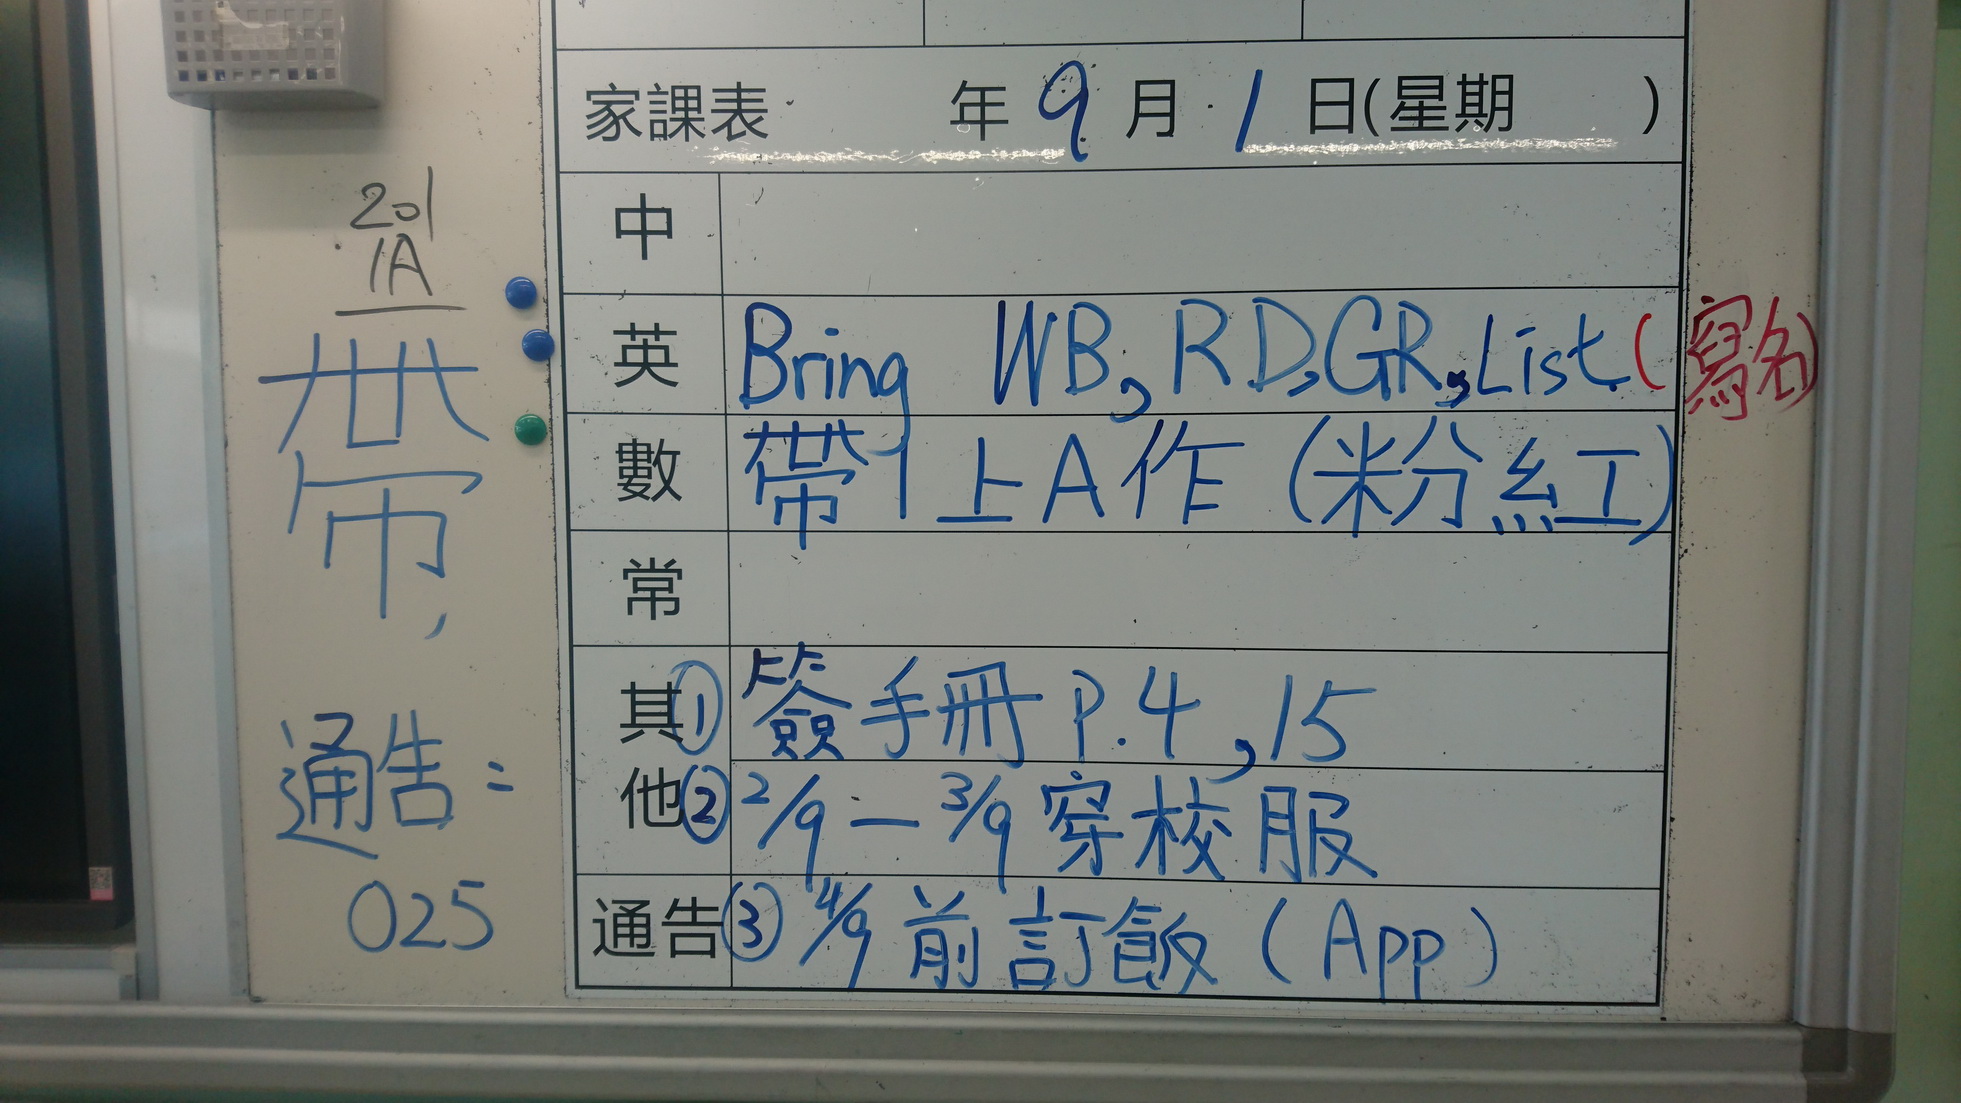 201
1A
帶,
通告:
025
家課表 年 9 月 1 日(星期 )
中
英 Bring WB, RD, GR, List. (寫名)
數 帶1上A作(粉紅)
常
其他 ① 簽手冊 P.4, 15
② 2/9 — 3/9 穿校服
通告 ③ 4/9 前訂飯 (App)